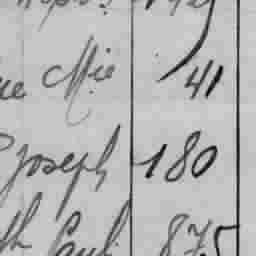 ue Mie 41
Joseph 180
th Paul 875